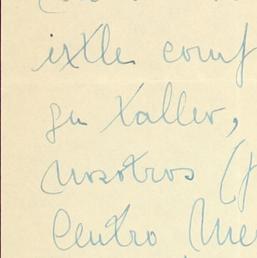 ixtle comf
su taller,
nosotros (
Centro Me